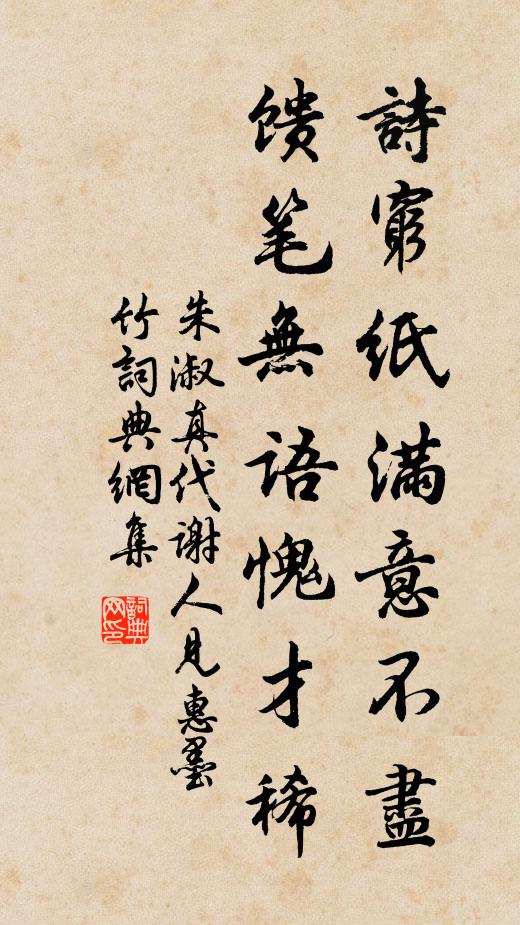 詩窮紙満意不盡
馈笔無語愧才稀
朱淑真代謝人見惠墨
竹詞典網集
詞典网印